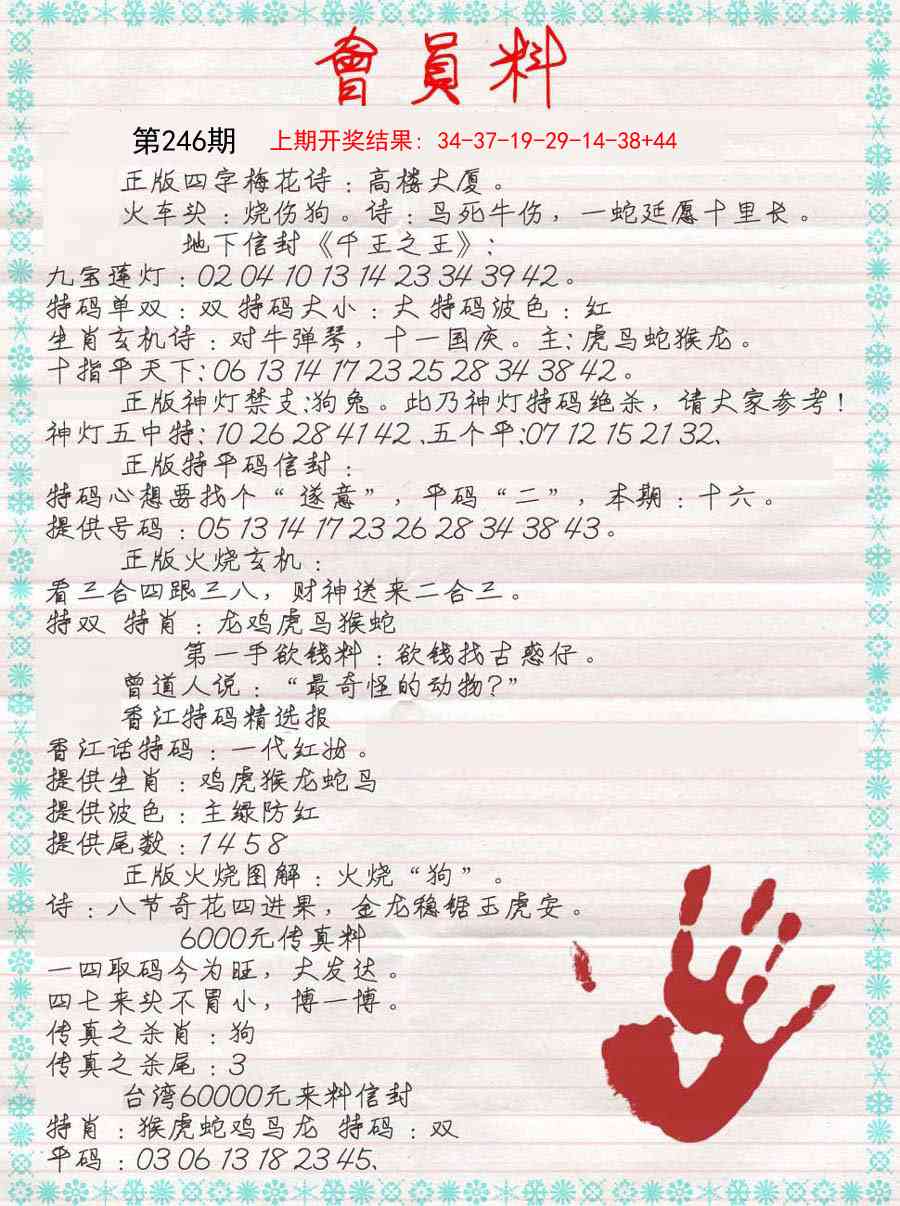 會員料
第246期 上期开奖结果：34-37-19-29-14-38+44
正版四字梅花诗：高楼大厦。
火车头：烧伤狗。诗：鸟死牛伤，一蛇延愿十里长。
地下信封《千王之王》：
九宝莲灯：02 04 10 13 14 23 34 39 42。
特码单双：双 特码大小：大 特码波色：红
生肖玄机诗：对牛弹琴，十一国庆。主：虎鸟蛇猴龙。
十指平天下：06 13 14 17 23 25 28 34 38 42。
正版神灯禁支：狗兔。此乃神灯特码绝杀，请大家参考！
神灯五中特：10 26 28 41 42、五个平：07 12 15 21 32、
正版特平码信封：
特码心想要找个“遂意”，平码“二”，本期：十六。
提供号码：05 13 14 17 23 26 28 34 38 43。
正版火烧玄机：
看三合四跟三八，财神送来二合三。
特双 特肖：龙鸡虎鸟猴蛇
第一手欲钱料：欲钱找古惑仔。
曾道人说：“最奇怪的动物？”
香江特码精选报
香江话特码：一代红妆。
提供生肖：鸡虎猴龙蛇鸟
提供波色：主绿防红
提供尾数：1 4 5 8
正版火烧图解：火烧“狗”。
诗：八节奇花四进果，金龙稳锯玉虎安。
6000元传真料
一四取码今为旺，大发达。
四七来头不冒小，博一博。
传真之杀肖：狗
传真之杀尾：3
台湾60000元来料信封
特肖：猴虎蛇鸡马龙 特码：双
平码：03 06 13 18 23 45、